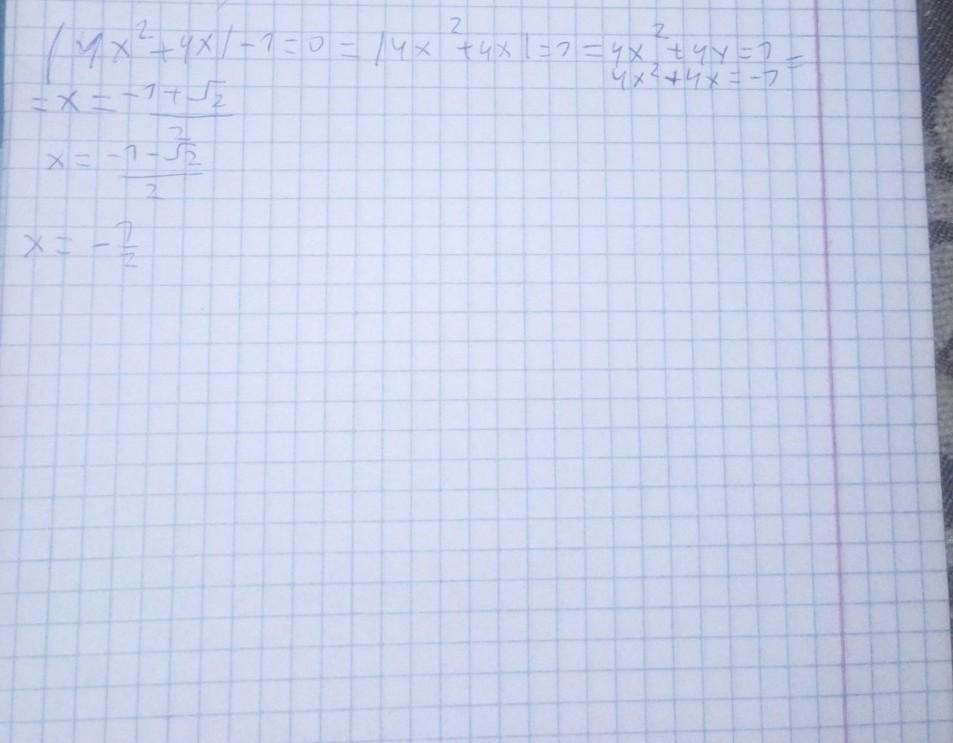 |4x²+4x|-1=0=|4x²+4x|=1=4x²+4x=1=
4x²+4x=-1
=x=\frac{-1+√2}{2}
x=\frac{-1-√2}{2}
x=-\frac{1}{2}